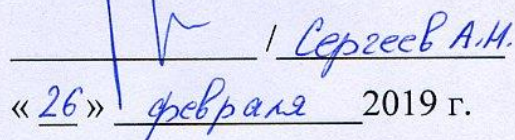 / Сергеев А.Н.
« 26 » февраля 2019 г.